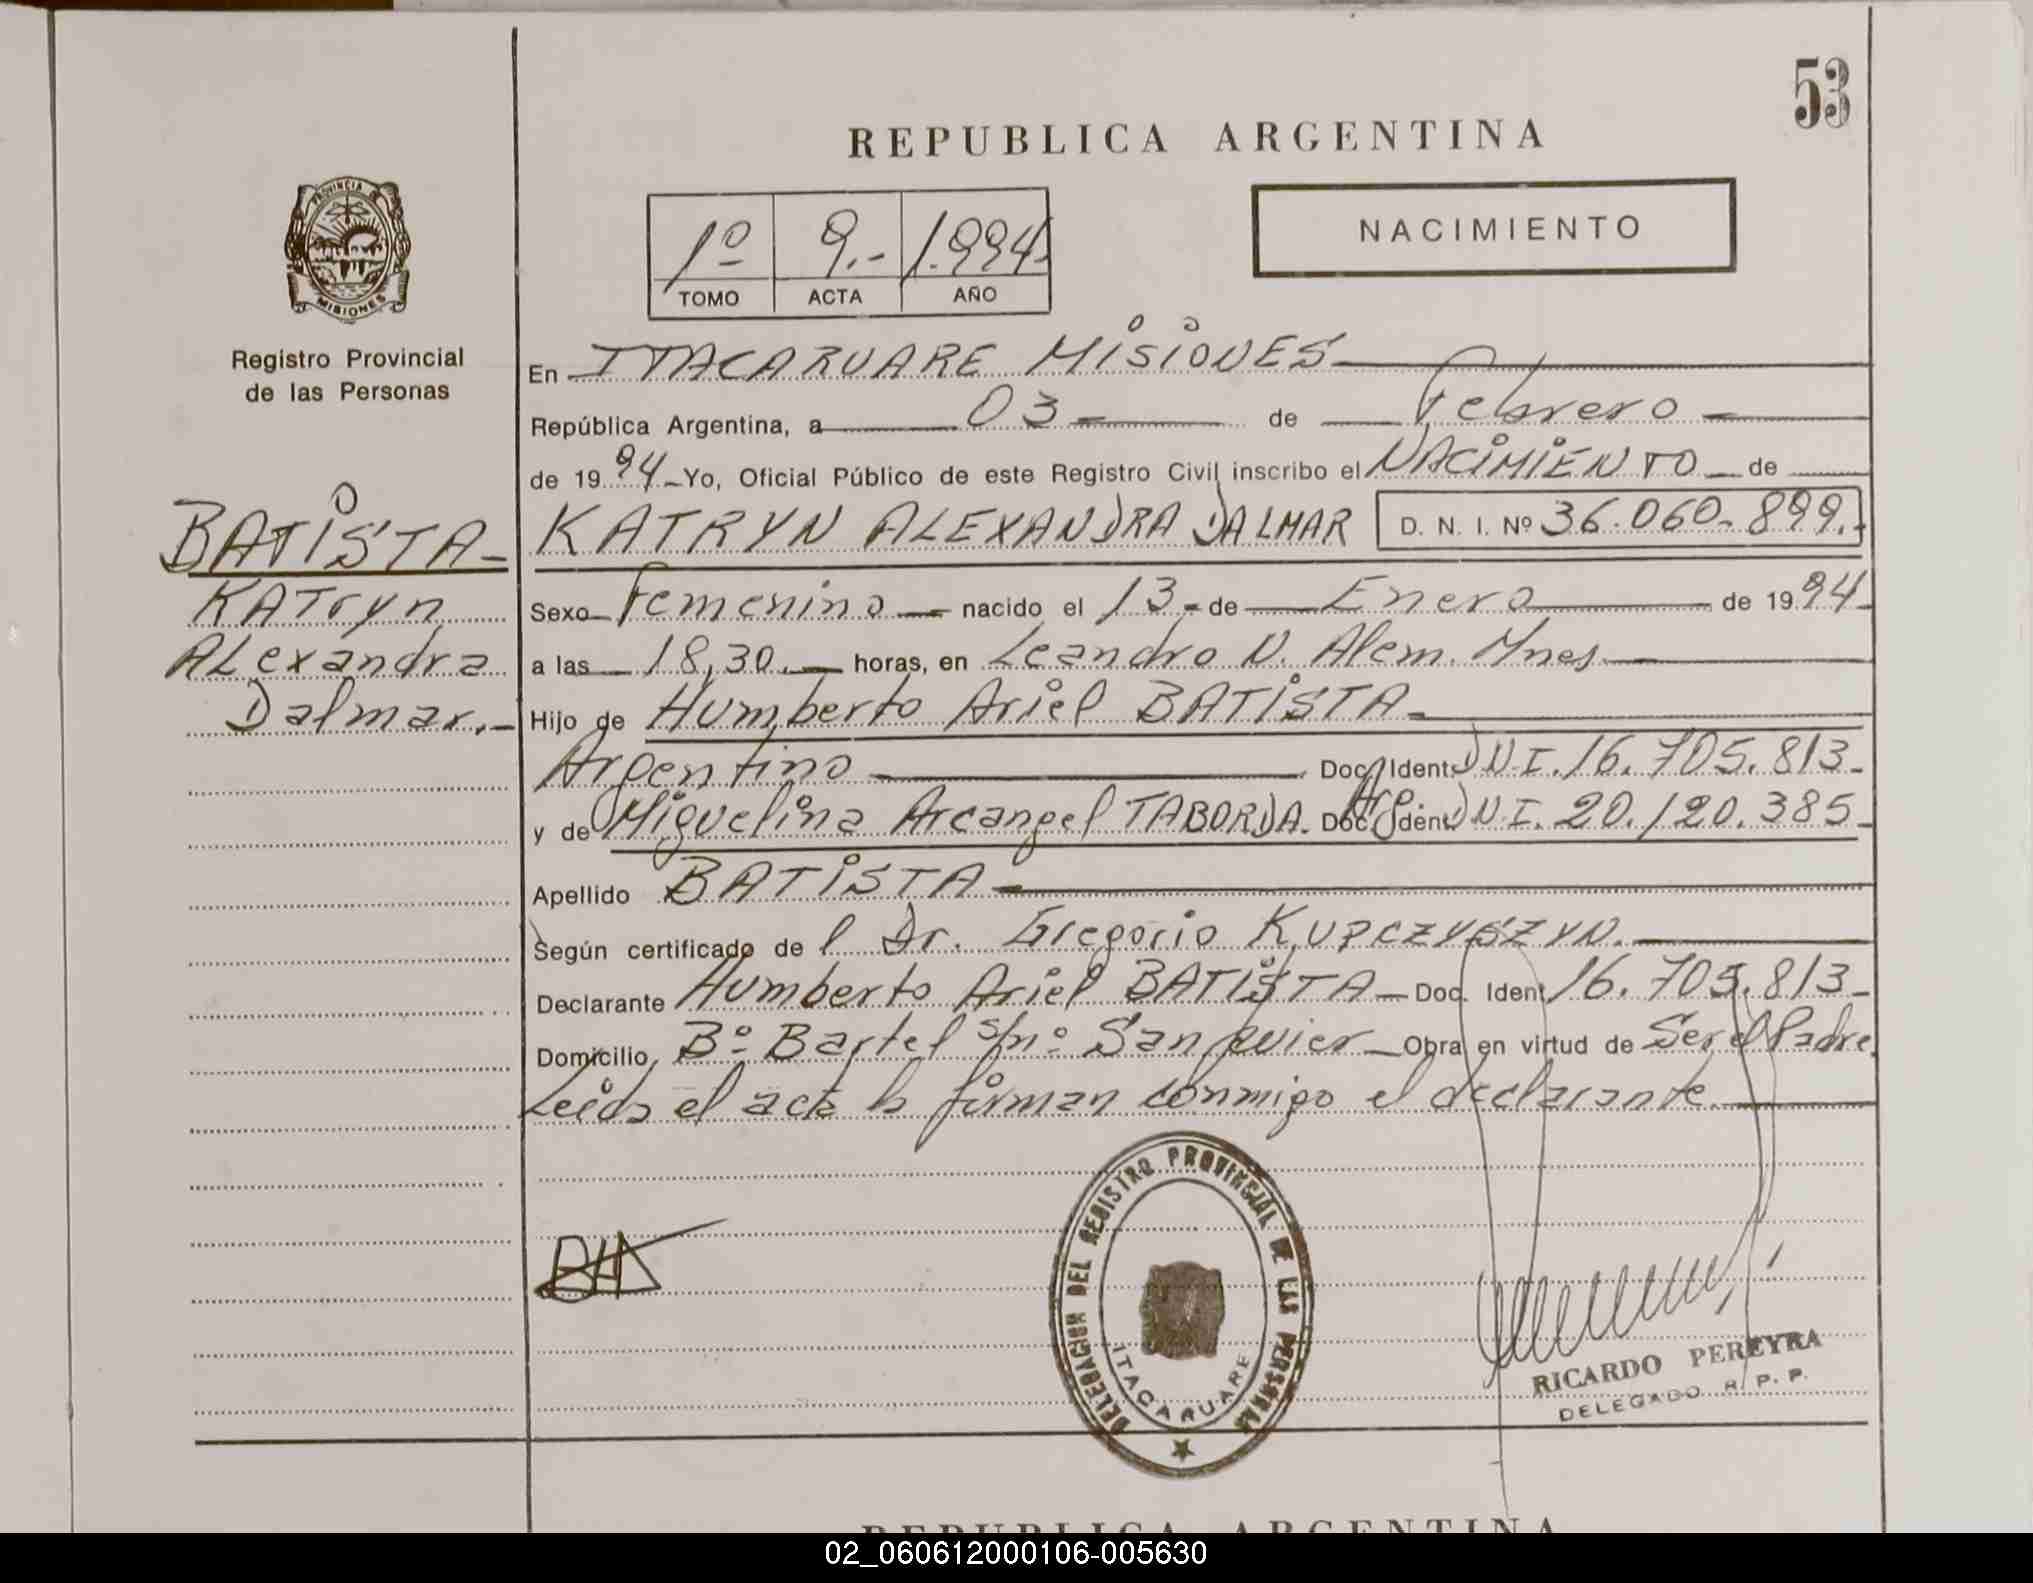 53
REPUBLICA ARGENTINA
PROVINCIA DE
MISIONES
Registro Provincial
de las Personas
1º 9.- 1.994
TOMO ACTA AÑO
NACIMIENTO
En ITACARUARE MISIONES
República Argentina, a 03 de Febrero
de 19 94 Yo, Oficial Público de este Registro Civil inscribo el NACIMIENTO de
BATISTA-
KATRYN ALEXANDRA DALMAR D. N. I. Nº 36.060.899.-
KATryn
Sexo Femenino nacido el 13 de Enero de 1994
ALexandra
a las 18,30. horas, en Leandro N. Alem. Mnes.
Dalmar.-
Hijo de Humberto Ariel BATISTA
Argentino Doc. Ident. D.N.I. 16.705.813-
y de Miguelina Arcangel TABORDA. Arg. Doc. Ident. D.N.I. 20.120.385-
Apellido BATISTA
Según certificado de l Dr. Gregorio KUPCZYSZYN.
Declarante Humberto Ariel BATISTA Doc. Ident. 16.705.813-
Domicilio Bº Bartel s/nº San Javier Obra en virtud de Ser el Padre.
Leida el acta la firman conmigo el declarante.
DELEGACION DEL REGISTRO PROVINCIAL DE LAS PERSONAS
ITACARUARE
RICARDO PEREYRA
DELEGADO R. P. P.
REPUBLICA ARGENTINA
02_060612000106-005630